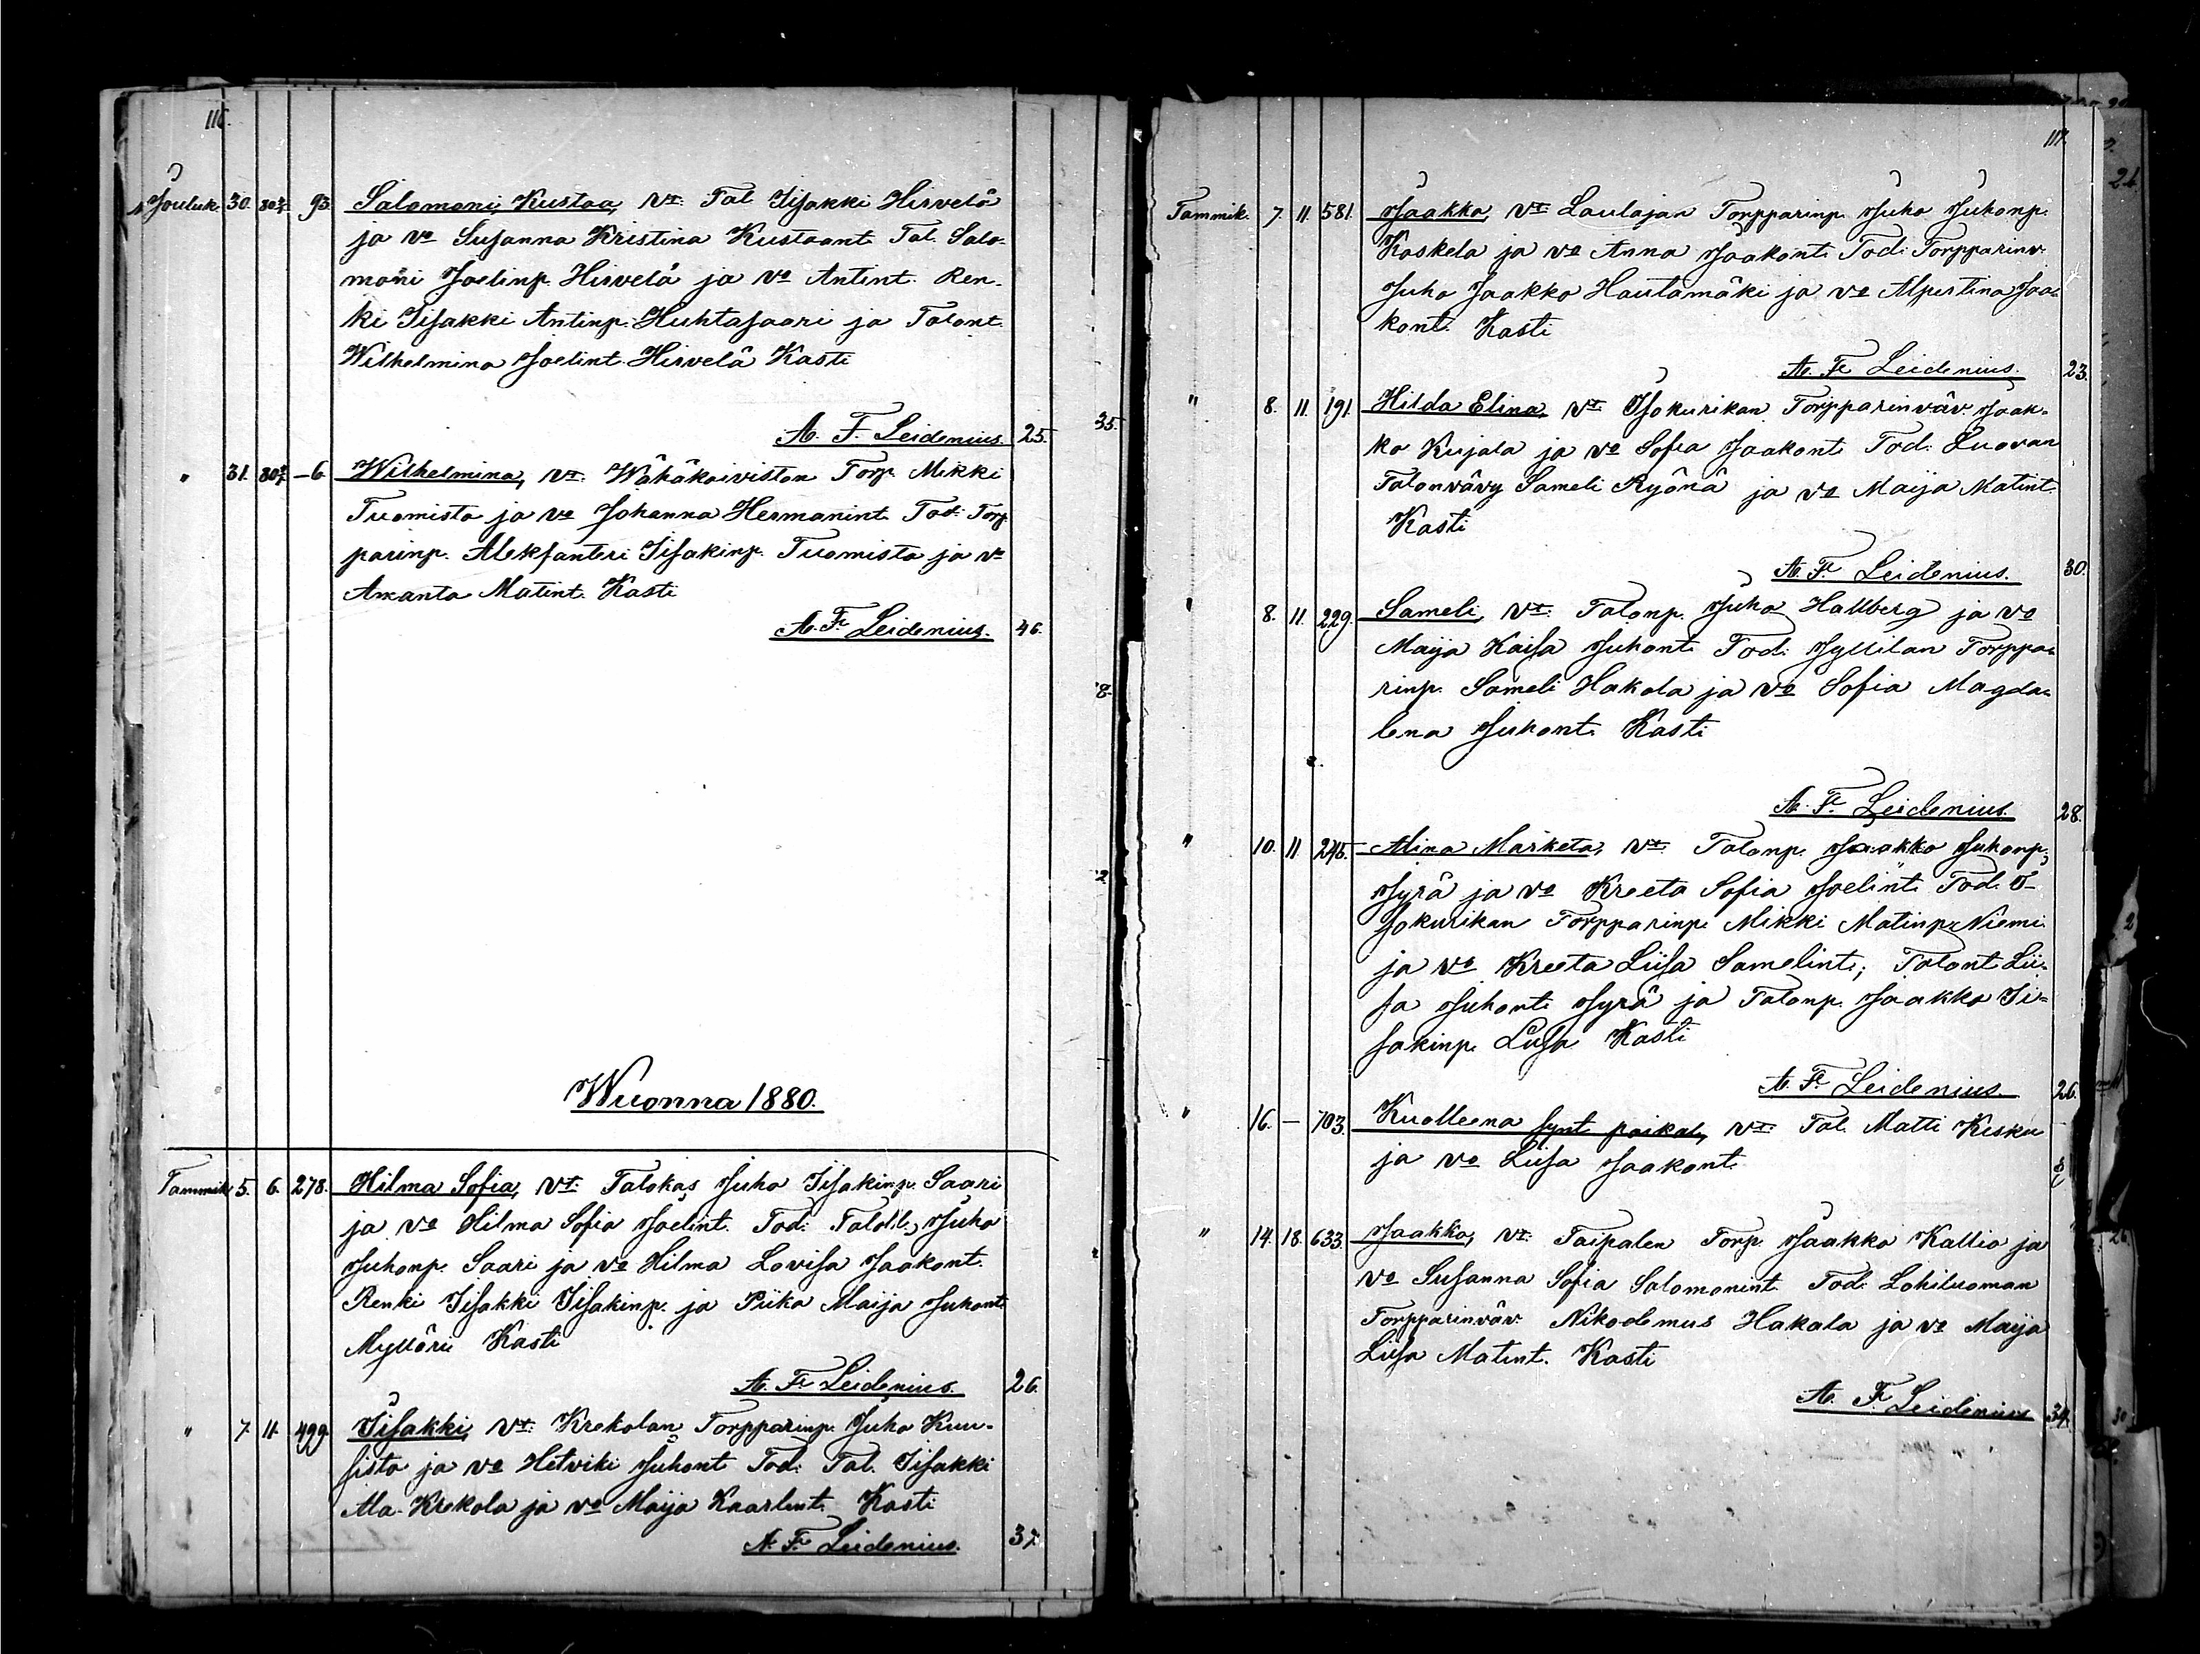 116.
Jouluk. 30. 30/12. 93. Salomoni Kustaa, vt. Tal. Iisakki Hirvelä
ja vo Susanna Kristina Kustaant. Tal. Salo-
moni Joelinp. Hirvelä ja vo Antint. Ren-
ki Iisakki Antinp. Huhtasaari ja Talont.
Wilhelmina Joelint. Hirvelä Kasti
A. F. Leidenius. 25.
" 31. – 6. Wilhelmina, vt. Wähäkoiviston Torp. Mikki
Tuomisto ja vo Johanna Hermanint. Tod: Torp-
parinp. Aleksanteri Iisakinp. Tuomisto ja vo
Amanta Matint. Kasti
A. F. Leidenius. 46.
Wuonna 1880.
Tammik. 5. 6. 278. Hilma Sofia, vt. Talokas Juho Iisakinp. Saari
ja vo Hilma Sofia Joelint. Tod: Juho
Juhonp. Saari ja vo Hilma Lovisa Jaakont.
Renki Iisakki Iisakinp. ja Piika Maija Juhont.
Mylläri Kasti
A. F. Leidenius. 26.
" 7. 11. 499. Iisakki, vt. Krekolan Torpparinp. Juho Kuu-
sisto ja vo Hetviki Juhont. Tod: Tal. Iisakki
Ala-Krekola ja vo Maija Kaarlent. Kasti
A. F. Leidenius. 37.
117.
Tammik. 7. 11. 581. Jaakko, vt. Laulajan Torpparinp. Juho Juhonp.
Koskela ja vo Anna Jaakont. Tod: Torpparinv.
Juho Jaakko Hautamäki ja vo Alpertina Jaa-
kont. Kasti
A. F. Leidenius. 23.
" 8. 11. 191. Hilda Elina, vt. Isokurikan Torpparinväv. Jaak-
ko Kujala ja vo Sofia Jaakont. Tod: Luovan
Talonvävy Sameli Ryönä ja vo Maija Matint.
Kasti
A. F. Leidenius. 30.
" 8. 11. 229. Sameli, vt. Talonp. Juho Hallberg ja vo
Maija Kaisa Juhont. Tod: Jyllilän Torppa-
rinp. Sameli Hakola ja vo Sofia Magda-
lena Juhont. Kasti
A. F. Leidenius. 28.
" 10. 11. 245. Alina Marketa, vt. Talonp. Jaakko Juhonp.
Jyrä ja vo Kreeta Sofia Joelint. Tod: I-
sokurikan Torpparinp. Mikki Matinp. Niemi
ja vo Kreeta Liisa Samelint.; Talont. Lii-
sa Juhont. Jyrä ja Talonp. Jaakko Ii-
sakinp. Kasti
A. F. Leidenius. 26.
" 16. – 703. Kuolleena synt. poikal., vt. Tal. Matti Kesku
ja vo Liisa Jaakont.
" 14. 18. 633. Jaakko, vt. Taipalen Torp. Jaakko Kallio ja
vo Susanna Sofia Salomonint. Tod: Lohiluoman
Torpparinväv. Nikodemus Hakala ja vo Maija
Liisa Matint. Kasti
A. F. Leidenius 34.